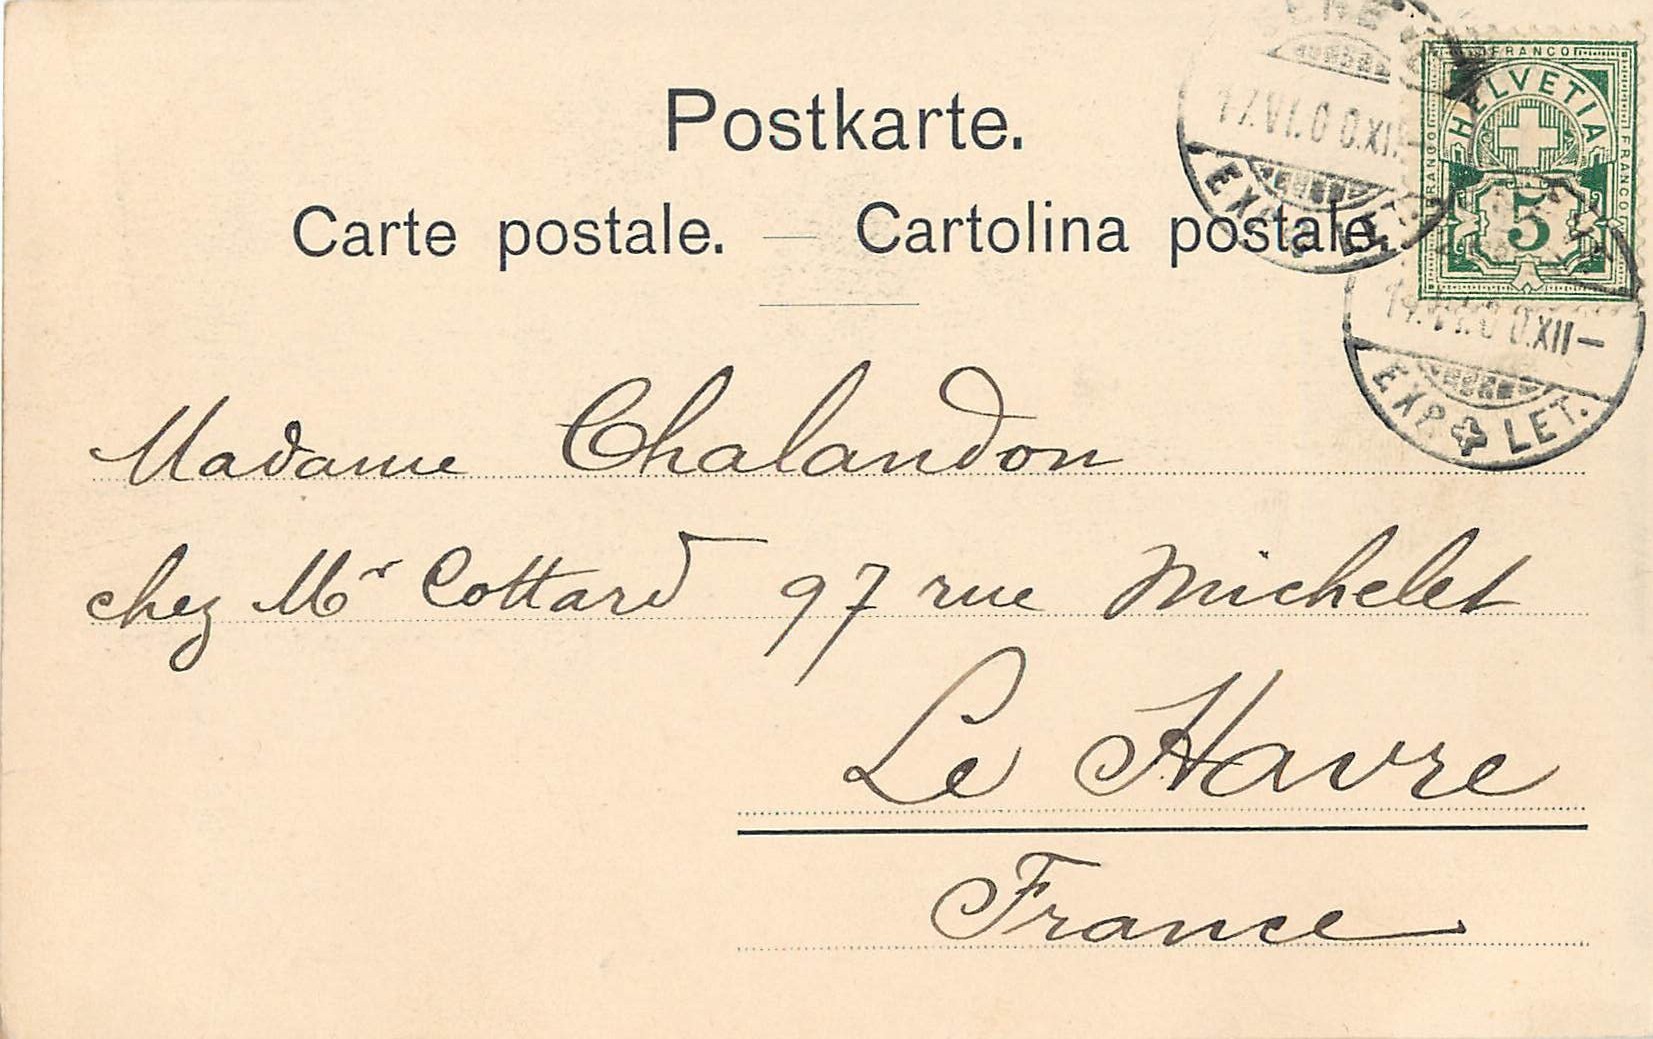 Postkarte.
Carte postale. — Cartolina postale.
FRANCO
HELVETIA
FRANCO
FRANCO
5
EXP. LET.
XII—
EXP. LET.
Madame Chalandon
chez Mr Cottard 97 rue Michelet
Le Havre
France